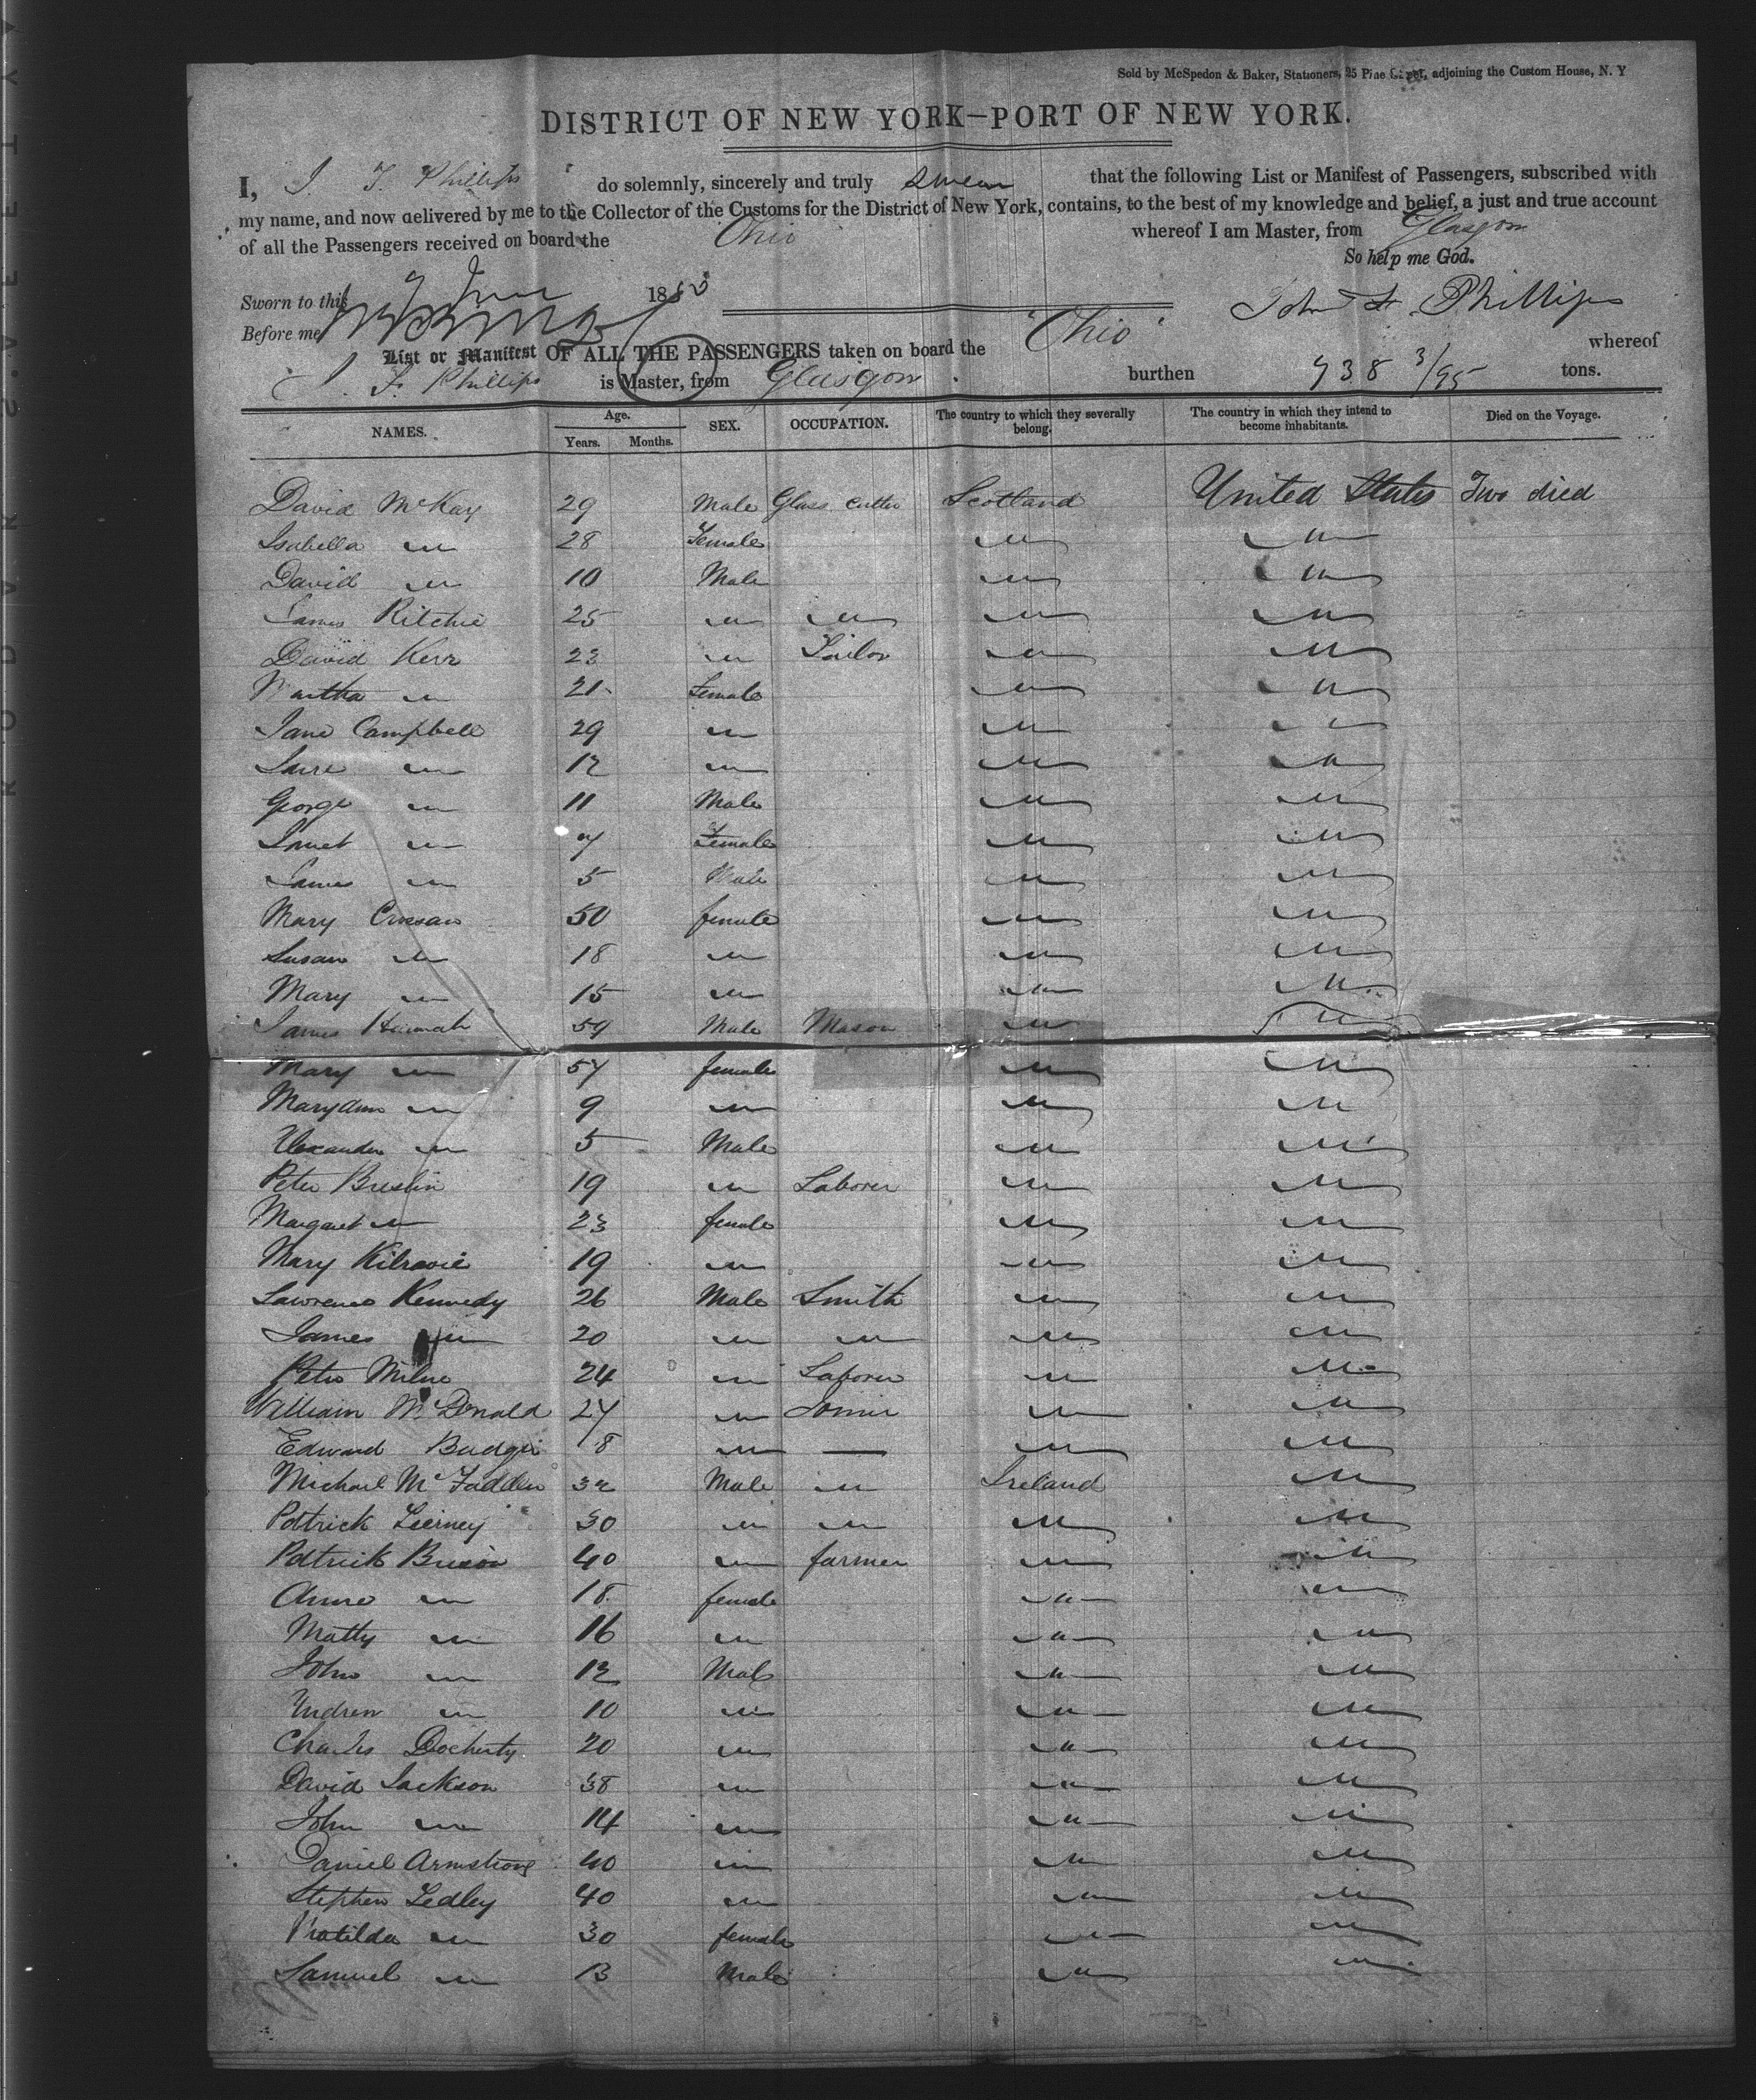 Sold by McSpedon & Baker, Stationers, 25 Pine Street, adjoining the Custom House, N. Y
DISTRICT OF NEW YORK—PORT OF NEW YORK.
I, J. F. Phillips do solemnly, sincerely and truly swear that the following List or Manifest of Passengers, subscribed with
my name, and now delivered by me to the Collector of the Customs for the District of New York, contains, to the best of my knowledge and belief, a just and true account
of all the Passengers received on board the Ohio whereof I am Master, from Glasgow
So help me God.
Sworn to this 7 June 1853
John F. Phillips
Before me
List or Manifest OF ALL THE PASSENGERS taken on board the "Ohio" whereof
J. F. Phillips is Master, from Glasgow. burthen 938 3/95 tons.
NAMES. Age. Years. Months. SEX. OCCUPATION. The country to which they severally belong. The country in which they intend to become inhabitants. Died on the Voyage.
David McKay 29 Male Glass cutter Scotland United States Two died
Isabella " 28 Female " "
David " 10 Male " "
James Ritchie 25 " " " "
David Kerr 23 " Tailor " "
Martha " 21 Female " "
Jane Campbell 29 " " "
Jane " 12 " " "
George " 11 Male " "
Janet " 7 Female " "
James " 5 Male " "
Mary Crossan 50 female " "
Susan " 18 " " "
Mary " 15 " " "
James Hannah 59 Male Mason " "
Mary " 57 female " "
Maryann " 9 " " "
Alexander " 5 Male " "
Peter Breslin 19 " Laborer " "
Margaret " 23 female " "
Mary 19 " " "
Lawrence Kennedy 26 Male Smith " "
James " 20 " " " "
Peter Milne 24 " Laborer " "
William McDonald 27 " Joiner " "
Edward 18 " — " "
Michael McFadden 32 Male " Ireland "
Pattrick Tierney 30 " " " "
Pattrick 40 " farmer " "
Anne " 18 female " "
Matty " 16 " " "
John " 12 Male " "
Andrew " 10 " " "
Charles Docherty 20 " " "
David Jackson 38 " " "
John " 14 " " "
Daniel Armstrong 40 " " "
Stephen Ledley 40 " " "
Matilda " 30 female " "
Samuel " 13 Male " "